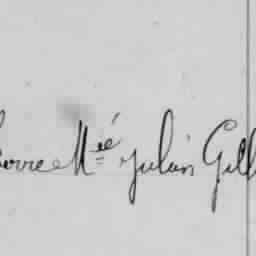 ierre Mié Julien Gill